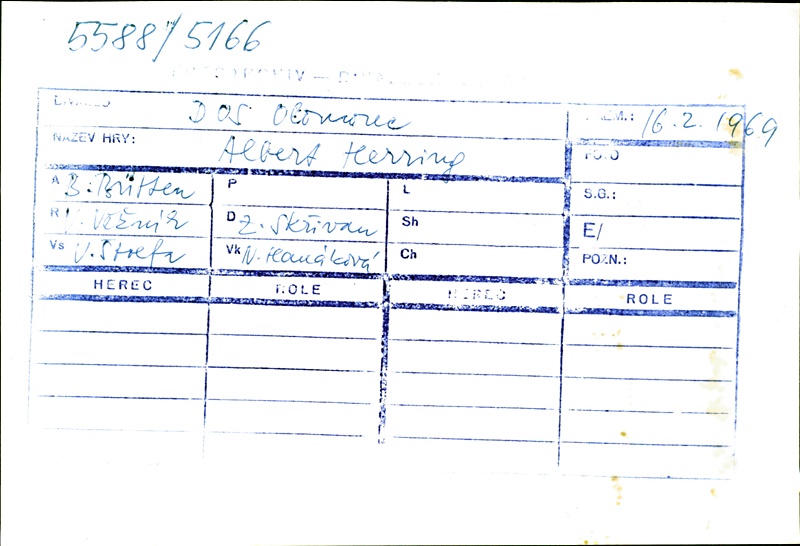 5588/5166
DIVADLO DOS Olomouc
PREM.: 16.2.1969
NÁZEV HRY: Albert Herring
FOTO
A B. Britten P L S.G.:
R Věžník D Z. Skřivan Sh E/
Vs V. Štolfa Vk N. Hanáková Ch POZN.:
HEREC ROLE HEREC ROLE